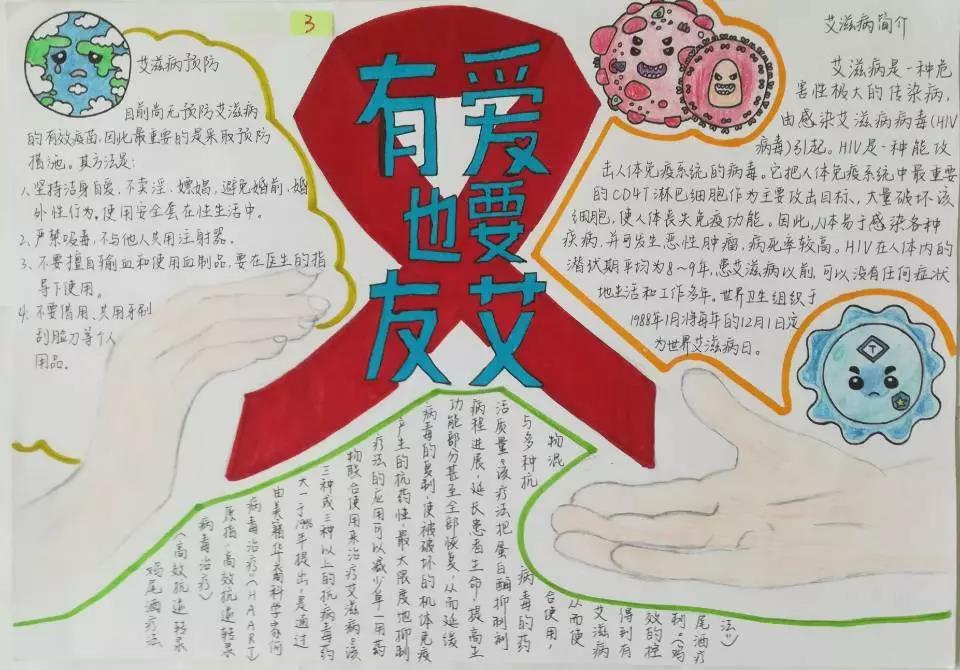 3
有爱
也要
友艾
艾滋病预防
目前尚无预防艾滋病
的有效疫苗,因此最重要的是采取预防
措施。其方法是:
1、坚持洁身自爱,不卖淫、嫖娼,避免婚前、婚
外性行为。使用安全套在性生活中。
2、严禁吸毒,不与他人共用注射器。
3、不要擅自输血和使用血制品,要在医生的指
导下使用。
4、不要借用、共用牙刷
刮脸刀等个人
用品。
艾滋病简介
艾滋病是一种危
害性极大的传染病,
由感染艾滋病病毒(HIV
病毒)引起。HIV是一种能攻
击人体免疫系统的病毒。它把人体免疫系统中最重要
的CD4T淋巴细胞作为主要攻击目标,大量破坏该
细胞,使人体丧失免疫功能。因此,人体易于感染各种
疾病,并可发生恶性肿瘤,病死率较高。HIV在人体内的
潜伏期平均为8~9年,患艾滋病以前,可以没有任何症状
地生活和工作多年。世界卫生组织于
1988年1月将每年的12月1日定
为世界艾滋病日。
T
鸡尾酒疗法
(高效抗逆转录
病毒治疗)
原指:高效抗逆转录
病毒治疗(HAART)
由美籍华裔科学家何
大一于年提出,是通过
三种或三种以上的抗病毒药
物联合使用来治疗艾滋病。该
疗法的应用可以减少单一用药
产生的抗药性,最大限度地抑制
病毒的复制,使被破坏的机体免疫
功能部分甚至全部恢复,从而延缓
病程进展,延长患者生命,提高生
活质量。该疗法把蛋白酶抑制剂
与多种抗病毒的药
物混合使用,
从而使
艾滋病
得到有
效的控
制。(鸡
尾酒疗
法)